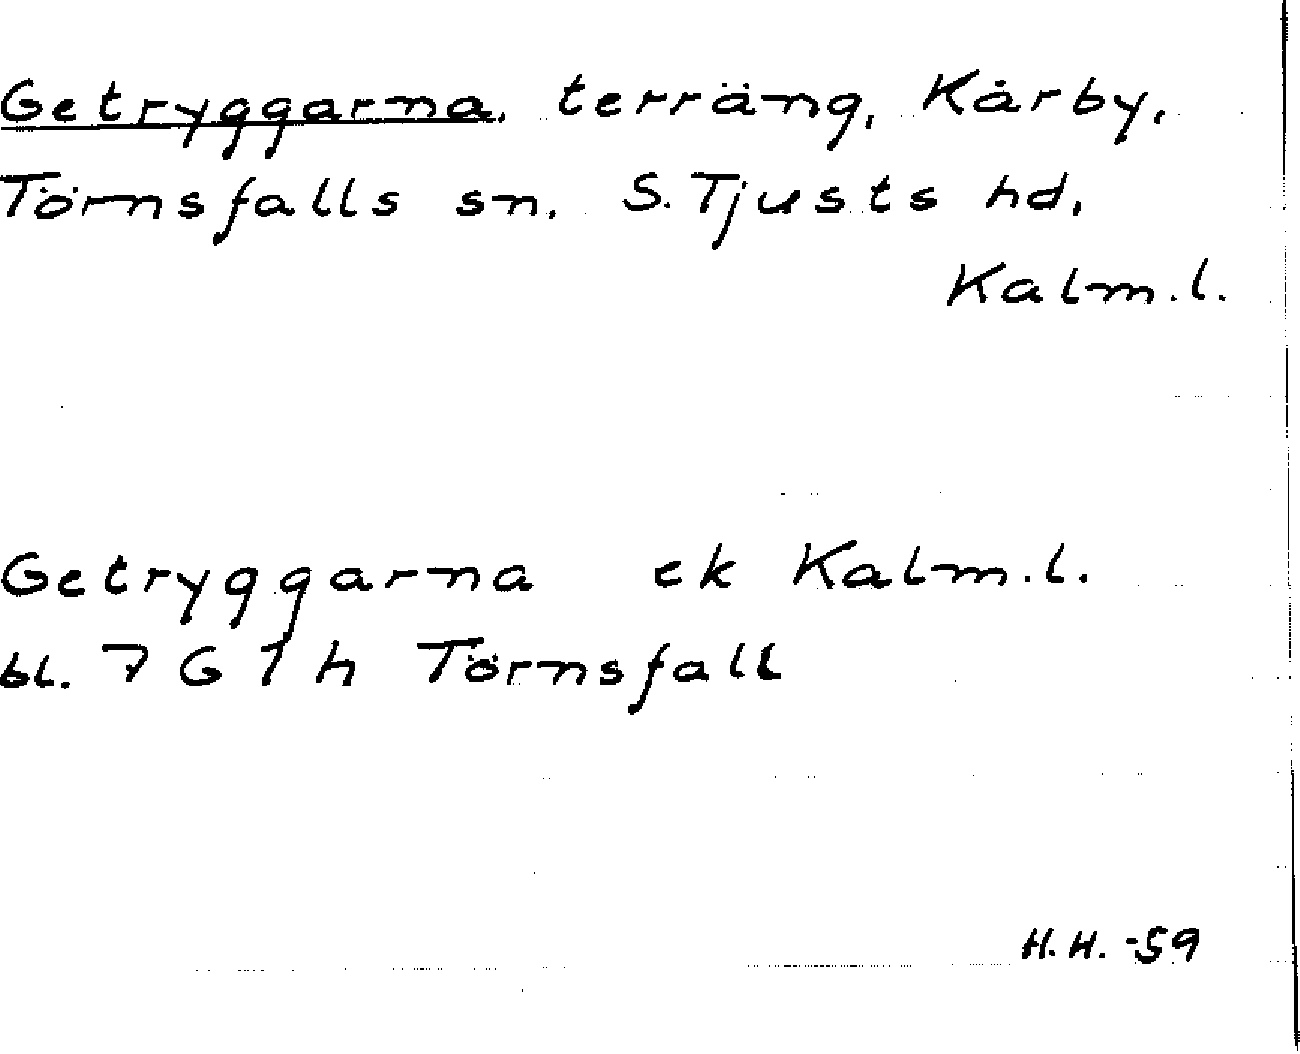 Getryggarna, terräng, Kårby,
Törnsfalls sn, S. Tjusts hd,
Kalm.l.
Getryggarna ek Kalm.l.
bl. 7 G 1 h Törnsfall
H.H. -59